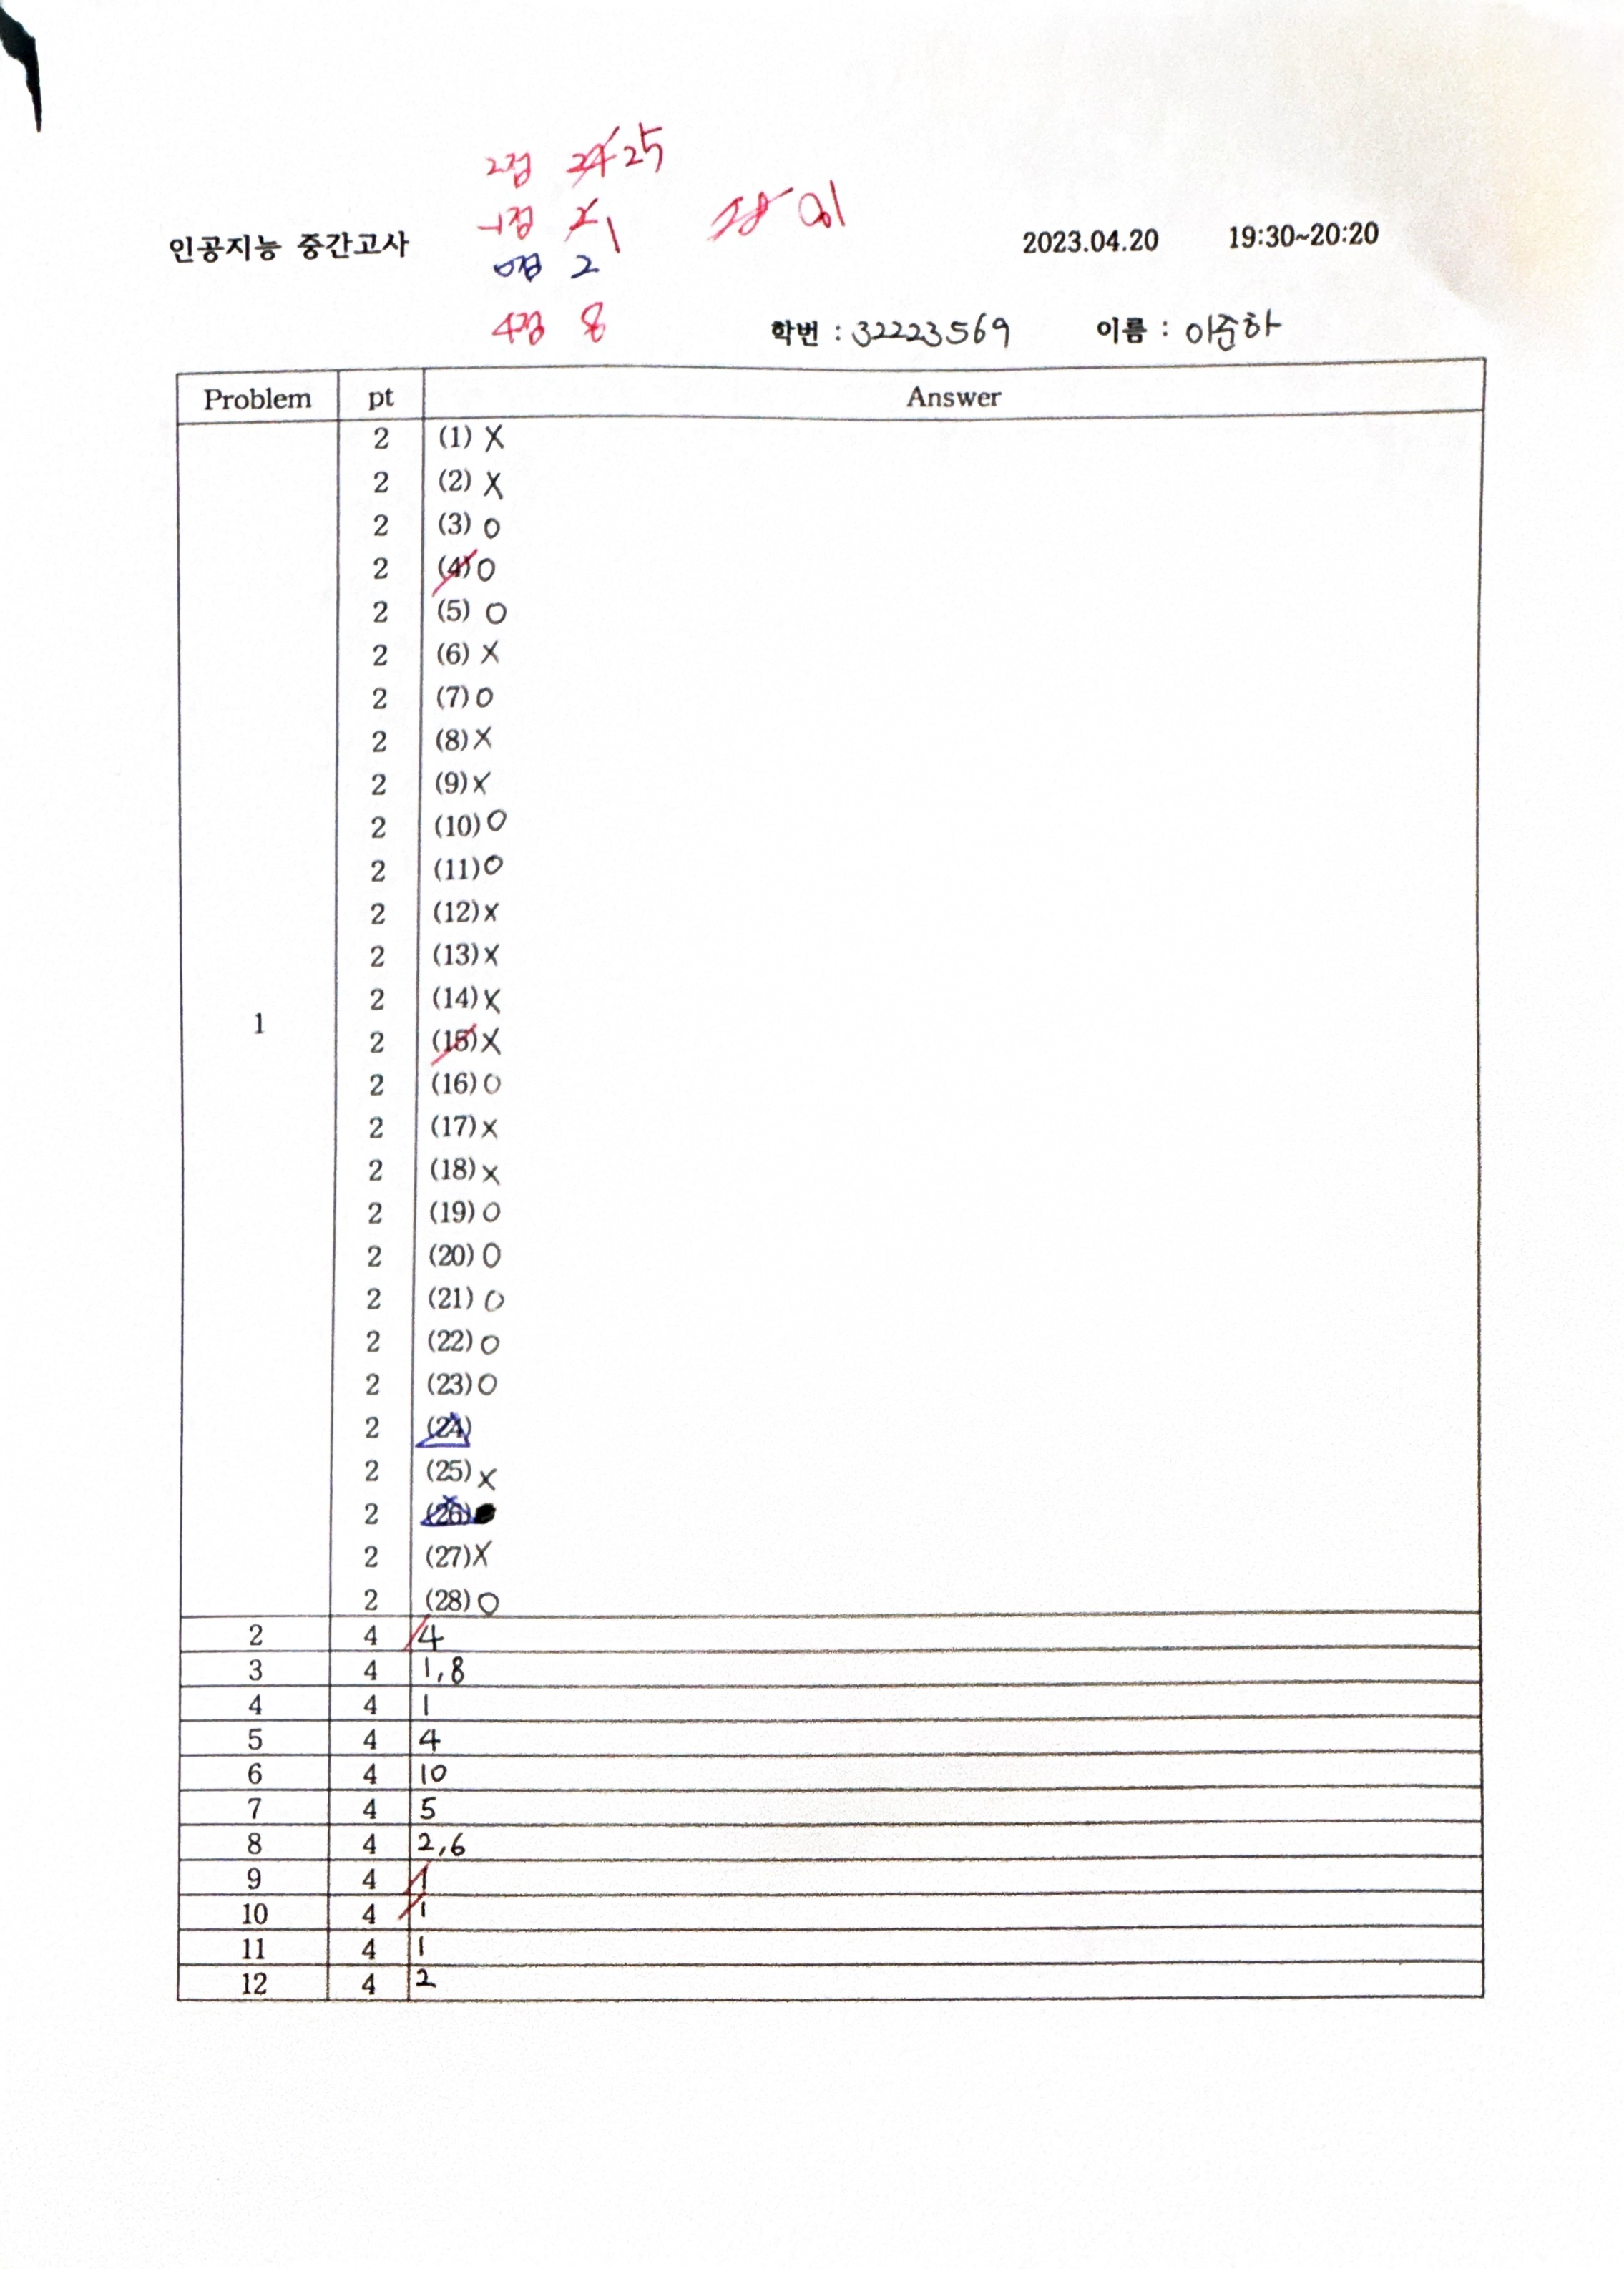 2점 24 25
-1점 2 1
0점 2
4점 8
인공지능 중간고사
2023.04.20 19:30~20:20
학번 : 32223569 이름 : 이준하
Problem pt Answer
1
2 (1) X
2 (2) X
2 (3) O
2 (4) O
2 (5) O
2 (6) X
2 (7) O
2 (8) X
2 (9) X
2 (10) O
2 (11) O
2 (12) X
2 (13) X
2 (14) X
2 (15) X
2 (16) O
2 (17) X
2 (18) X
2 (19) O
2 (20) O
2 (21) O
2 (22) O
2 (23) O
2 (24)
2 (25) X
2 (26)
2 (27) X
2 (28) O
2 4 4
3 4 1, 8
4 4 1
5 4 4
6 4 10
7 4 5
8 4 2, 6
9 4 1
10 4 1
11 4 1
12 4 2